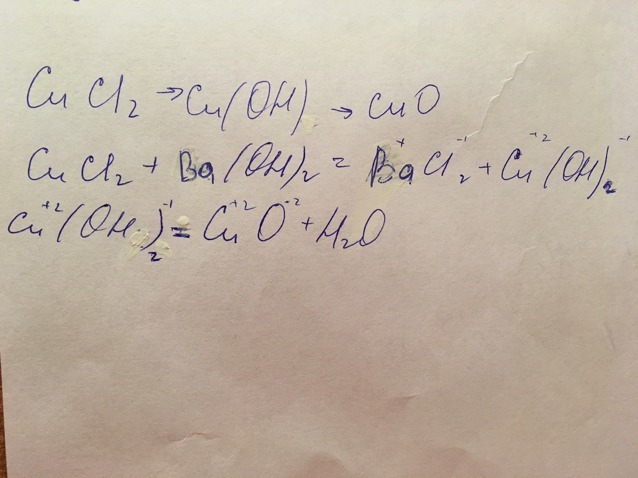 CuCl₂ → Cu(OH) → CuO
CuCl₂ + Ba(OH)₂ = Ba⁺Cl₂⁻¹ + Cu⁺²(OH)₂⁻¹
Cu⁺²(OH)₂⁻¹ = Cu⁺²O⁻² + H₂O